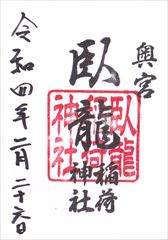 奥宮
臥龍稲荷神社
令和四年二月二十六日
臥龍
稲荷
神社